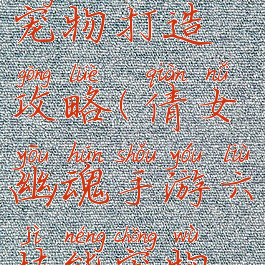 宠物打造
gōng lüè qiàn nǚ
攻略(倩女
yōu hún shǒu yóu liù
幽魂手游六
jì néng chǒng wù
技能宠物